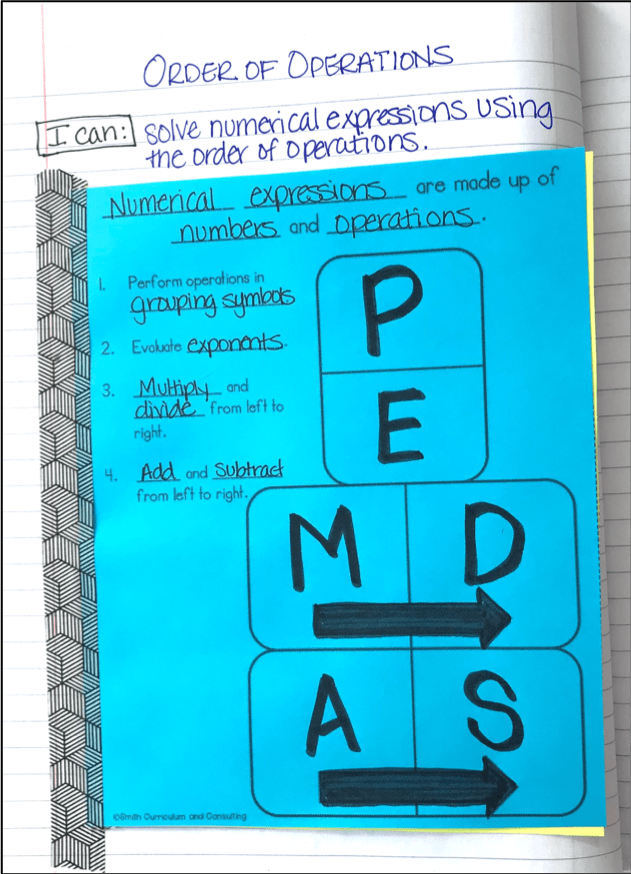 ORDER OF OPERATIONS
I can: solve numerical expressions using
the order of operations.
Numerical expressions are made up of
numbers and operations.
1. Perform operations in
grouping symbols
2. Evaluate exponents.
3. Multiply and
divide from left to
right.
4. Add and Subtract
from left to right.
P
E
M D
A S
©Smith Curriculum and Consulting